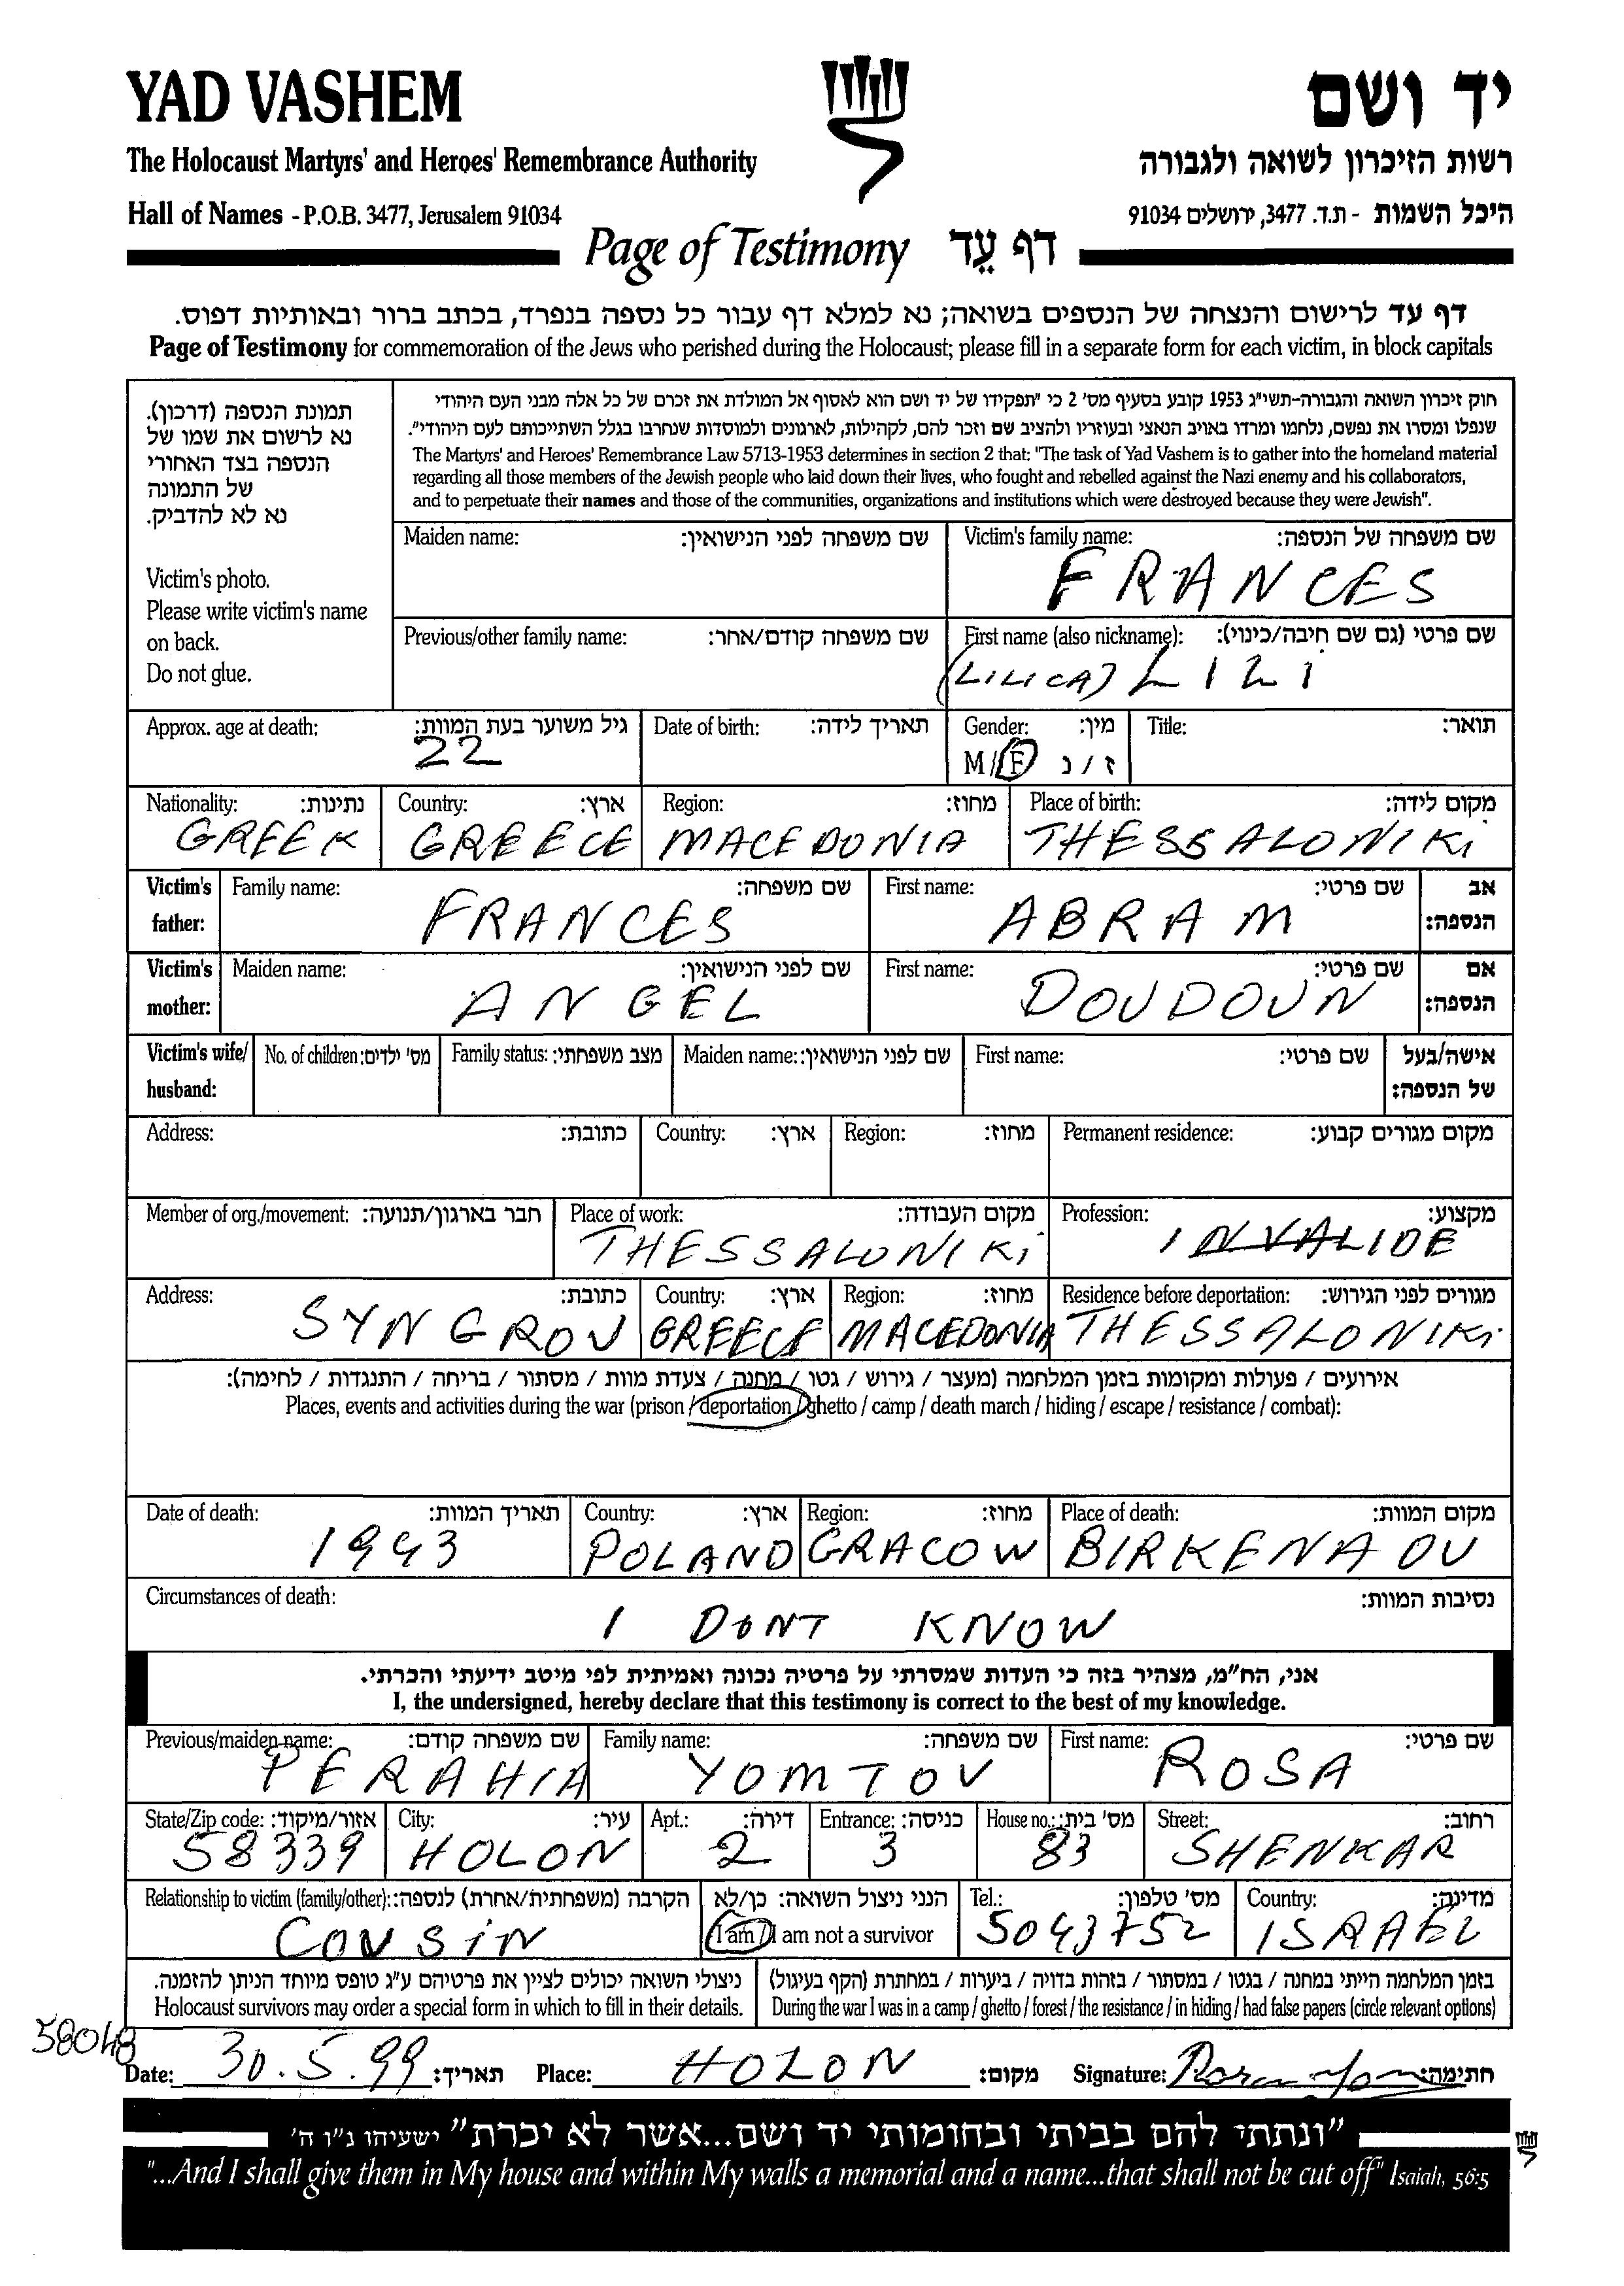 YAD VASHEM
יד ושם
The Holocaust Martyrs' and Heroes' Remembrance Authority
רשות הזיכרון לשואה ולגבורה
Hall of Names - P.O.B. 3477, Jerusalem 91034
היכל השמות - ת.ד. 3477, ירושלים 91034
Page of Testimony דף עֵד
דף עד לרישום והנצחה של הנספים בשואה; נא למלא דף עבור כל נספה בנפרד, בכתב ברור ובאותיות דפוס.
Page of Testimony for commemoration of the Jews who perished during the Holocaust; please fill in a separate form for each victim, in block capitals
תמונת הנספה (דרכון).
נא לרשום את שמו של
הנספה בצד האחורי
של התמונה
נא לא להדביק.
Victim's photo.
Please write victim's name
on back.
Do not glue.
חוק זיכרון השואה והגבורה-תשי"ג 1953 קובע בסעיף מס' 2 כי "תפקידו של יד ושם הוא לאסוף אל המולדת את זכרם של כל אלה מבני העם היהודי
שנפלו ומסרו את נפשם, נלחמו ומרדו באויב הנאצי ובעוזריו ולהציב שם וזכר להם, לקהילות, לארגונים ולמוסדות שנחרבו בגלל השתייכותם לעם היהודי".
The Martyrs' and Heroes' Remembrance Law 5713-1953 determines in section 2 that: "The task of Yad Vashem is to gather into the homeland material
regarding all those members of the Jewish people who laid down their lives, who fought and rebelled against the Nazi enemy and his collaborators,
and to perpetuate their names and those of the communities, organizations and institutions which were destroyed because they were Jewish".
Maiden name: שם משפחה לפני הנישואין: Victim's family name: שם משפחה של הנספה:
FRANCES
Previous/other family name: שם משפחה קודם/אחר: First name (also nickname): שם פרטי (גם שם חיבה/כינוי):
(LILICA) LILI
Approx. age at death: גיל משוער בעת המוות: Date of birth: תאריך לידה: Gender: מין: Title: תואר:
22 M/F ז/נ
Nationality: נתינות: Country: ארץ: Region: מחוז: Place of birth: מקום לידה:
GREEK GREECE MACEDONIA THESSALONIKi
Victim's father: Family name: שם משפחה: First name: שם פרטי: אב הנספה:
FRANCES ABRAM
Victim's mother: Maiden name: שם לפני הנישואין: First name: שם פרטי: אם הנספה:
ANGEL DOUDOUN
Victim's wife/ husband: No. of children: מס' ילדים: Family status: מצב משפחתי: Maiden name: שם לפני הנישואין: First name: שם פרטי: אישה/בעל של הנספה:
Address: כתובת: Country: ארץ: Region: מחוז: Permanent residence: מקום מגורים קבוע:
Member of org./movement: חבר בארגון/תנועה: Place of work: מקום העבודה: Profession: מקצוע:
THESSALONIKi INVALIDE
Address: כתובת: Country: ארץ: Region: מחוז: Residence before deportation: מגורים לפני הגירוש:
SYNGROU GREECE MACEDONIA THESSALONIKi
אירועים / פעולות ומקומות בזמן המלחמה (מעצר / גירוש / גטו / מחנה / צעדת מוות / מסתור / בריחה / התנגדות / לחימה):
Places, events and activities during the war (prison / deportation / ghetto / camp / death march / hiding / escape / resistance / combat):
Date of death: תאריך המוות: Country: ארץ: Region: מחוז: Place of death: מקום המוות:
1943 POLAND GRACOW BIRKENAOU
Circumstances of death: נסיבות המוות:
I DONT KNOW
אני, הח"מ, מצהיר בזה כי העדות שמסרתי על פרטיה נכונה ואמיתית לפי מיטב ידיעתי והכרתי.
I, the undersigned, hereby declare that this testimony is correct to the best of my knowledge.
Previous/maiden name: שם משפחה קודם: Family name: שם משפחה: First name: שם פרטי:
PERAHIA YOMTOV ROSA
State/Zip code: אזור/מיקוד: City: עיר: Apt.: דירה: Entrance: כניסה: House no.: מס' בית: Street: רחוב:
58339 HOLON 2 3 83 SHENKAR
Relationship to victim (family/other): הקרבה (משפחתית/אחרת) לנספה: הנני ניצול השואה: כן/לא Tel.: מס' טלפון: Country: מדינה:
COUSiN I am / I am not a survivor 5043752 ISRAEL
ניצולי השואה יכולים לציין את פרטיהם ע"ג טופס מיוחד הניתן להזמנה. בזמן המלחמה הייתי במחנה / בגטו / במסתור / בזהות בדויה / ביערות / במחתרת (הקף בעיגול)
Holocaust survivors may order a special form in which to fill in their details. During the war I was in a camp / ghetto / forest / the resistance / in hiding / had false papers (circle relevant options)
58048
Date: 30.5.99 תאריך: Place: HOLON מקום: Signature: חתימה:
"ונתתי להם בביתי ובחומותי יד ושם...אשר לא יכרת" ישעיהו נ"ו ה'
"...And I shall give them in My house and within My walls a memorial and a name...that shall not be cut off" Isaiah, 56:5